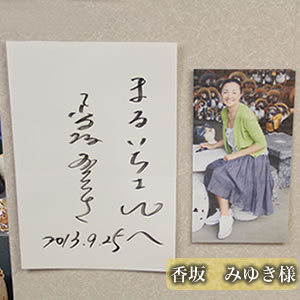 まるいちさんへ
香坂みゆき
2013.9.25
香坂　みゆき様